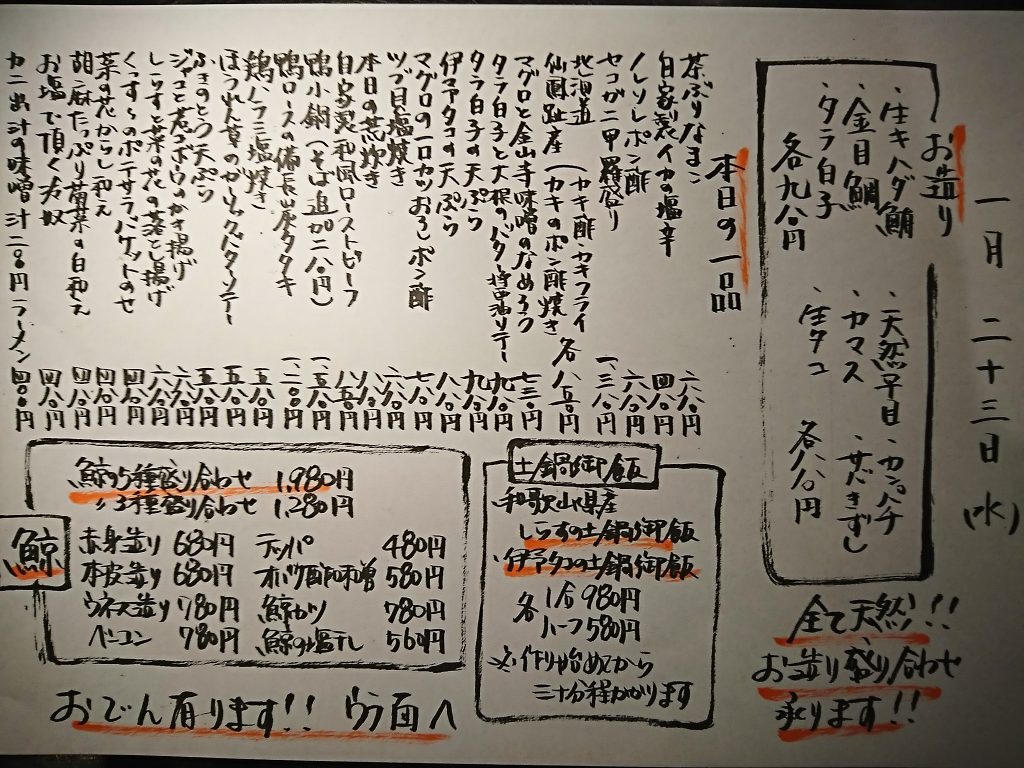 一月 二十三日 (水)
お造り
・生キハダ鮪
・金目鯛
・タラ白子
各九八〇円
・天然平目・カンパチ
・カマス ・サバきずし
・生タコ
各八八〇円
全て天然!!
お造り盛り合わせ
承ります!!
本日の一品
茶ぶりなまこ 六八〇円
自家製イカの塩辛 四八〇円
ノレソレポン酢 六八〇円
セコガニ甲羅盛り 一、三八〇円
北海道
仙鳳趾産 (カキ酢・カキフライ
(カキのポン酢焼き 各八五〇円
マグロと金山寺味噌のなめろう 七三〇円
タラ白子と大根のバター醤油ソテー 九八〇円
タラ白子の天ぷら 九八〇円
伊予タコの天ぷら 八八〇円
マグロの一口カツおろしポン酢 七八〇円
ツブ貝塩焼き 六八〇円
本日の煮炊き 八八〇円
自家製和風ローストビーフ 八五〇円
鴨小鍋(そば追加二八〇円) 一、五八〇円
鴨ロースの備長炭タタキ 一、二八〇円
鶏ハラミ塩焼き 五八〇円
ほうれん草のガーリックバターソテー 五八〇円
ふきのとう天ぷら 五八〇円
ジャコと若ゴボウのかき揚げ 六八〇円
しらすと菜の花の落とし揚げ 六八〇円
くっす〜らのポテサラ バゲットのせ 四八〇円
菜の花からし和え 四八〇円
胡麻たっぷり菊菜の白和え 四八〇円
お塩で頂く冷奴 四八〇円
カニ出汁の味噌汁二八〇円 ラーメン四八〇円
土鍋御飯
和歌山県産
しらすの土鍋御飯
伊予タコの土鍋御飯
各 1合 980円
ハーフ 580円
※作り始めてから
三十分程かかります
鯨
鯨の5種盛り合わせ 1,980円
〃3種盛り合わせ 1,280円
赤身造り 680円 テッパ 480円
本皮造り 680円 オバケ酢味噌 580円
ウネス造り 780円 鯨カツ 780円
ベーコン 780円 鯨の塩干し 560円
おでん有ります!! ウラ面へ